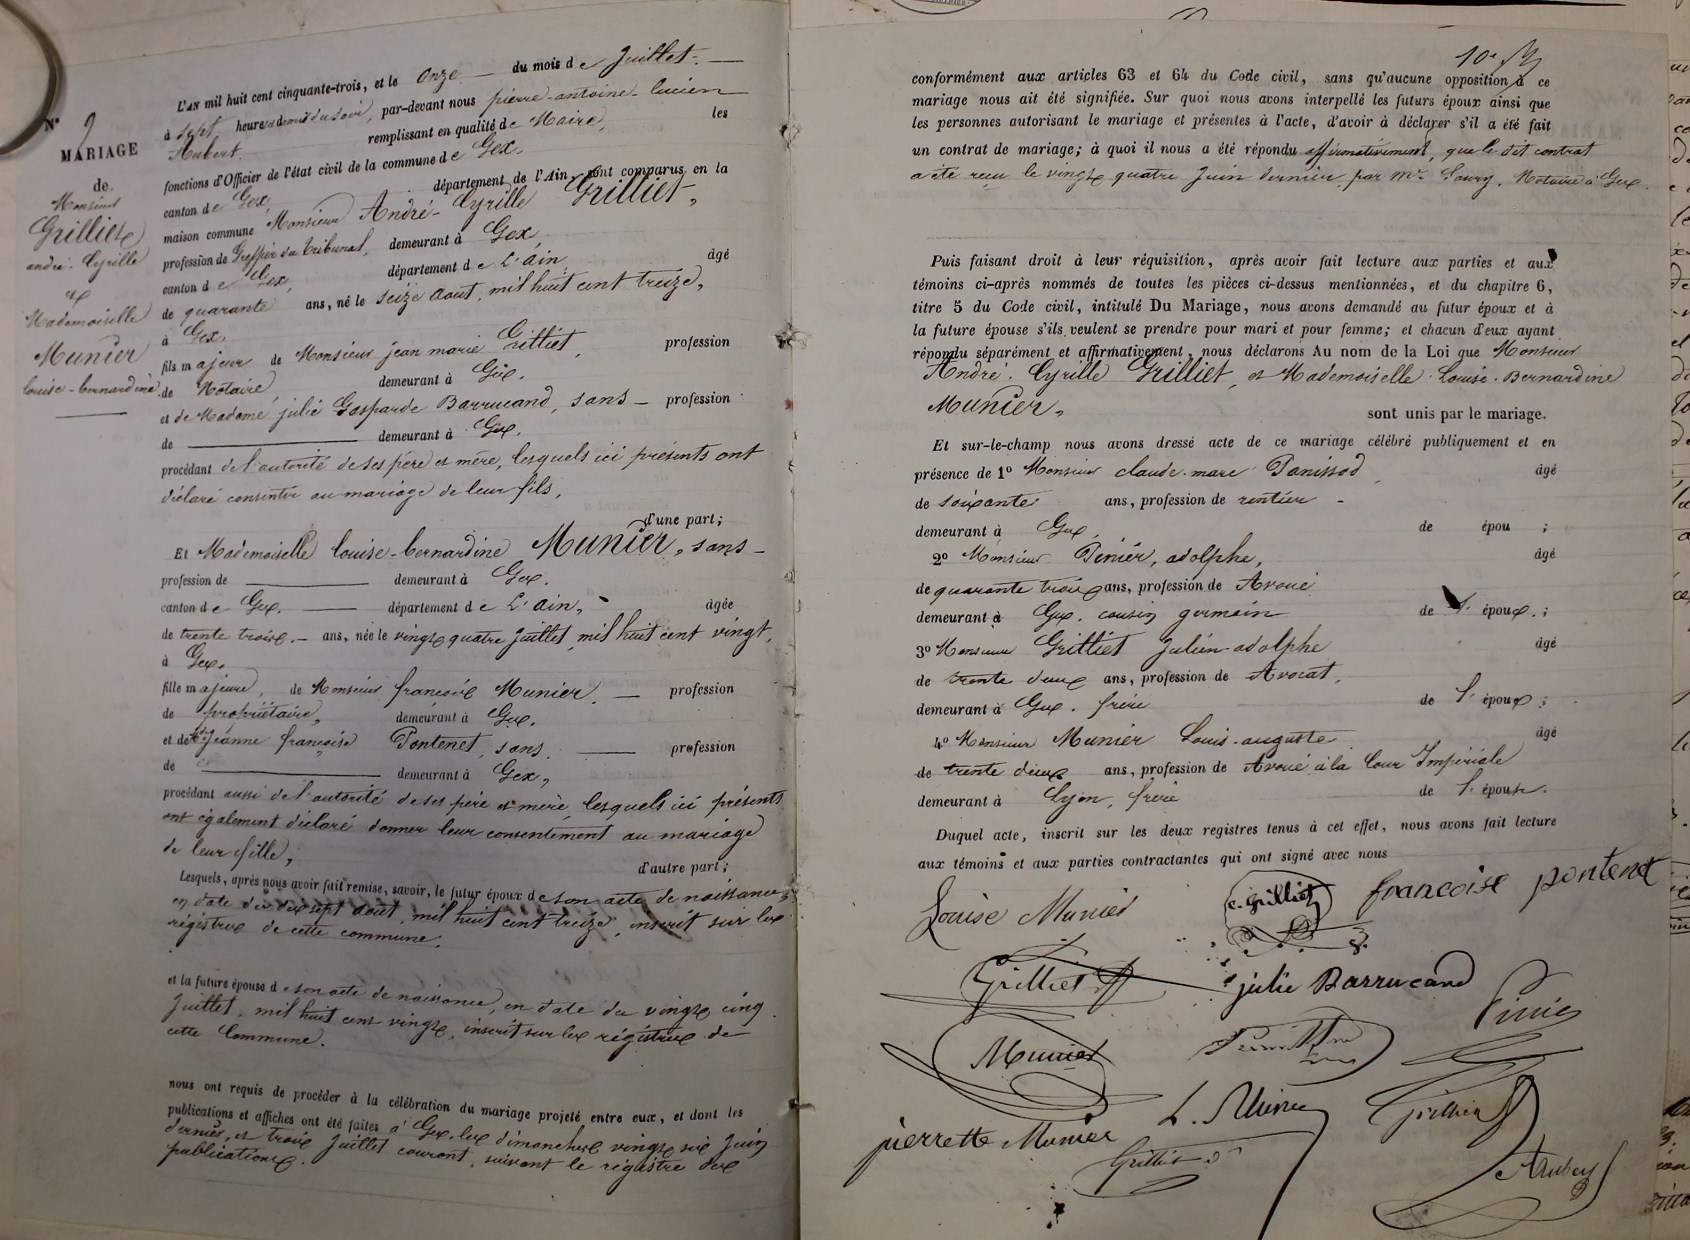 N° 9
MARIAGE
de
Monsieur
Grilliet
andré. Cyrille
et
Mademoiselle
Munier
louise-bernardine.
L'AN mil huit cent cinquante-trois, et le onze du mois de Juillet.
à sept heures et demie du soir, par-devant nous pierre-antoine-lucien
Aubert. remplissant en qualité de Maire, les
fonctions d'Officier de l'état civil de la commune de Gex,
canton de Gex, département de l'Ain, sont comparus en la
maison commune Monsieur André-Cyrille Grilliet,
profession de Greffier du tribunal, demeurant à Gex,
canton de Gex, département de L'ain, âgé
de quarante ans, né le seize Aout, mil huit cent treize,
à Gex,
fils majeur de Monsieur jean marie Grilliet, profession
de Notaire, demeurant à Gex,
et de Madame julie Gasparde Barrucand, sans profession
de demeurant à Gex.
procédant de l'autorité de ses père et mère, lesquels ici présents ont
déclaré consentir au mariage de leur fils,
d'une part;
Et Mademoiselle louise-bernardine Munier, sans
profession de demeurant à Gex.
canton de Gex. département de L'ain, âgée
de trente trois. ans, née le vingt quatre Juillet, mil huit cent vingt,
à Gex,
fille majeure, de Monsieur françois Munier. profession
de propriétaire, demeurant à Gex.
et de Jeanne françoise Pontenet, sans profession
de demeurant à Gex,
procédant aussi de l'autorité de ses père et mère, lesquels ici présents
ont également déclaré donner leur consentement au mariage
de leur fille, d'autre part;
Lesquels, après nous avoir fait remise, savoir, le futur époux de son acte de naissance,
en date du dix sept Aout, mil huit cent treize, inscrit sur les
régistres de cette commune,
et la future épouse de son acte de naissance, en date du vingt cinq
Juillet, mil huit cent vingt, inscrit sur les régistres de
cette Commune.
nous ont requis de procéder à la célébration du mariage projeté entre eux, et dont les
publications et affiches ont été faites à Gex, les dimanches vingt six Juin
dernier, et trois Juillet courant, suivant le régistre des
publications.
10e
conformément aux articles 63 et 64 du Code civil, sans qu'aucune opposition à ce
mariage nous ait été signifiée. Sur quoi nous avons interpellé les futurs époux ainsi que
les personnes autorisant le mariage et présentes à l'acte, d'avoir à déclarer s'il a été fait
un contrat de mariage; à quoi il nous a été répondu affirmativement, que le dit contrat
a été reçu le vingt quatre Juin dernier par Me Notaire à Gex.
Puis faisant droit à leur réquisition, après avoir fait lecture aux parties et aux
témoins ci-après nommés de toutes les pièces ci-dessus mentionnées, et du chapitre 6,
titre 5 du Code civil, intitulé Du Mariage, nous avons demandé au futur époux et à
la future épouse s'ils veulent se prendre pour mari et pour femme; et chacun d'eux ayant
répondu séparément et affirmativement, nous déclarons Au nom de la Loi que Monsieur
André. Cyrille Grilliet, et Mademoiselle Louise. Bernardine
Munier, sont unis par le mariage.
Et sur-le-champ nous avons dressé acte de ce mariage célébré publiquement et en
présence de 1° Monsieur claude. marc Panissod, âgé
de soixante ans, profession de rentier
demeurant à Gex, de épou ;
2° Monsieur Pinier, adolphe, âgé
de quarante trois ans, profession de Avoué
demeurant à Gex. cousin germain de l'époux. ;
3° Monsieur Grilliet Julien-adolphe âgé
de trente deux ans, profession de Avocat,
demeurant à Gex. frère de l'époux ;
4° Monsieur Munier Louis-auguste âgé
de trente deux ans, profession de Avoué à la Cour Impériale
demeurant à Lyon, frère de l'épouse.
Duquel acte, inscrit sur les deux registres tenus à cet effet, nous avons fait lecture
aux témoins et aux parties contractantes qui ont signé avec nous
Louise Munier c. Grilliet francoise pontenet
Grilliet julie Barrucand
Pinier
Munier
L. Munier Grilliet
pierrette Munier
Grilliet
Aubert